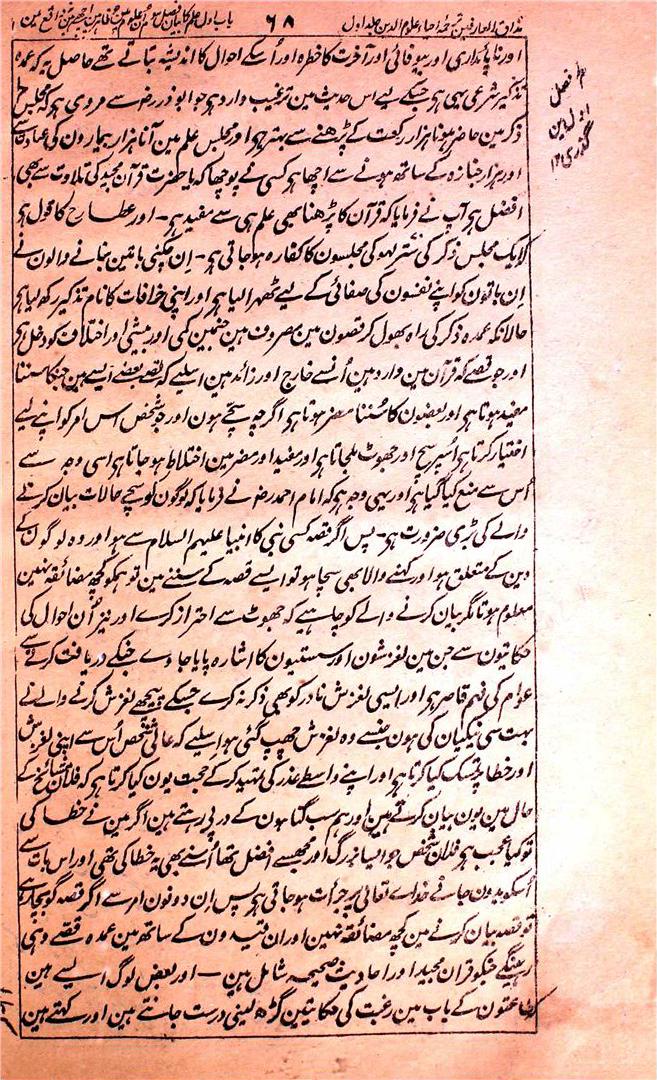 مذاق العارفین ترجمہ احیاء علوم الدین جلد اول ۶۸ باب اول علم کا بیان فصل سوم
اور ناپائداری اور بیوفائی اور آخرت کا خطرہ اور اُسکے احوال کا اندیشہ بتاتے تھے حاصل یہ کہ عمدہ
تذکیر شرعی یہی ہی جسکے لیے اس حدیث مین ترغیب وارد ہی جو ابوذر رضہ سے مروی ہی کہ مجلس
ذکر مین حاضر ہونا ہزار رکعت کے پڑھنے سے بہتر ہی اور مجلس علم مین آنا ہزار بیمارون کی عیادت سے
اور ہزار جنازہ کے ساتھ ہونے سے اچھا ہی کسی نے پوچھا کہ یا حضرت قرآن مجید کی تلاوت سے بھی
افضل ہی آپ نے فرمایا کہ قرآن کا پڑھنا بھی علم ہی سے مفید ہی۔ اور عطا رح کا قول ہی
کہ ایک مجلس ذکر کی ستر لہو کی مجلسون کا کفارہ ہو جاتی ہی۔ اِن چکنی باتین بنانے والون نے
اِن باتون کو اپنے نفسون کی صفائی کے لیے ٹھہرا لیا ہی اور اپنی خرافات کا نام تذکیر رکھ لیا ہی
حالانکہ عمدہ ذکر کی راہ بھول کر قصون مین مصروف ہین جنمین کمی اور بیشی اور اختلاف کو دخل ہی
اور جو قصے کہ قرآن مین وارد ہین اُنسے خارج اور زائد ہین اسلیے کہ قصے بعضے ایسے ہین جنکا سننا
مفید ہوتا ہی اور بعضون کا سُننا مضر ہوتا ہی اگرچہ سچے ہون اور جو شخص اس امر کو اپنے لیے
اختیار کرتا ہی اُسپر سچ اور جھوٹ ملجاتا ہی اور مفید اور مضر مین اختلاط ہو جاتا ہی اسی وجہ سے
اُس سے منع کیا گیا ہی اور یہی وجہ ہی کہ امام احمد رضہ نے فرمایا کہ لوگون کو سچے حالات بیان کرنے
والے کی بڑی ضرورت ہی۔ پس اگر قصہ کسی نبی کا انبیا علیہم السلام سے ہو اور وہ لوگون کے
دین کے متعلق ہو اور کہنے والا بھی سچا ہو تو ایسے قصہ کے سننے مین تو ہمکو کچھ مضائقہ نہین
معلوم ہوتا مگر بیان کرنے والے کو چاہیے کہ جھوٹ سے احتراز کرے اور نیز اُن احوال کی
حکایتون سے جن مین لغزشون اور سستیون کا اشارہ پایا جاوے جنکے دریافت کرنے سے
عوام کی فہم قاصر ہی اور ایسی لغزش نادر کو بھی ذکر نہ کرے جسکے پیچھے لغزش کرنے والے نے
بہت سی نیکیان کی ہون جنسے وہ لغزش چھپ گئی ہو اسلیے کہ عامی شخص اُس سے اپنی لغزش
اور خطا پر تمسک کیا کرتا ہی اور اپنے واسطے عذر کی تمہید کرکے حجت یون کیا کرتا ہی کہ فلان مشائخ کے
حال مین یون بیان کرتے ہین اور ہم سب گناہون کے درپی رہتے ہین اگر مین نے خطا کی
تو کیا عجب ہی فلان شخص جو ایسا بزرگ اور مجھسے افضل تھا اُسنے بھی یہ خطا کی تھی اور اس بات سے
اُسکو بدون جانے خدا ے تعالی پر جرأت ہو جاتی ہی پس اِن دونون امر سے اگر قصہ گو بچا رہے
تو قصہ بیان کرنے مین کچھ مضائقہ نہین اور ان قیدون کے ساتھ مین عمدہ قصے وہی
رہینگے جنکو قرآن مجید اور احادیث صحیحہ شامل ہین — اور بعض لوگ ایسے ہین
کہ طاعتون کے باب مین رغبت کی حکایتین گڑھ لینی درست جانتے ہین اور کہتے ہین